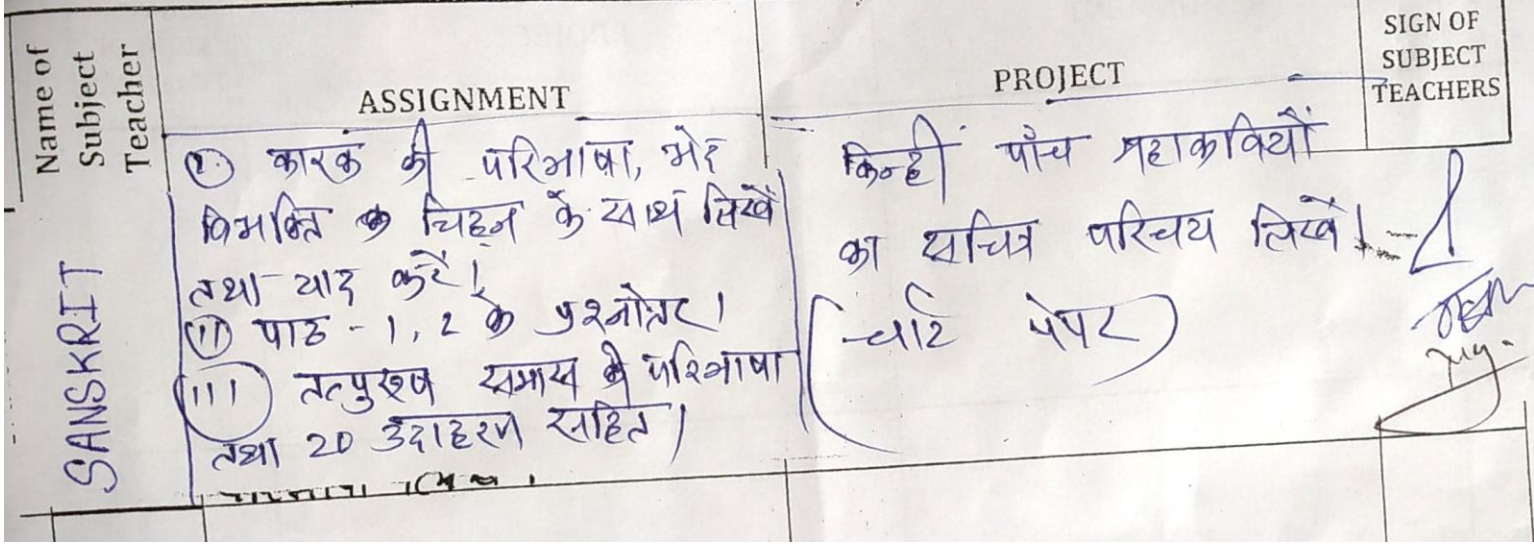 Name of
Subject
Teacher
ASSIGNMENT
PROJECT
SIGN OF
SUBJECT
TEACHERS
SANSKRIT
① कारक की परिभाषा, भेद
विभक्ति चिह्न के साथ लिखें
तथा याद करें।
(ii) पाठ - 1, 2 के प्रश्नोत्तर।
(iii) तत्पुरुष समास की परिभाषा
तथा 20 उदाहरण सहित।
किन्ही पाँच महाकवियों
का सचित्र परिचय लिखें।
(चार्ट पेपर)